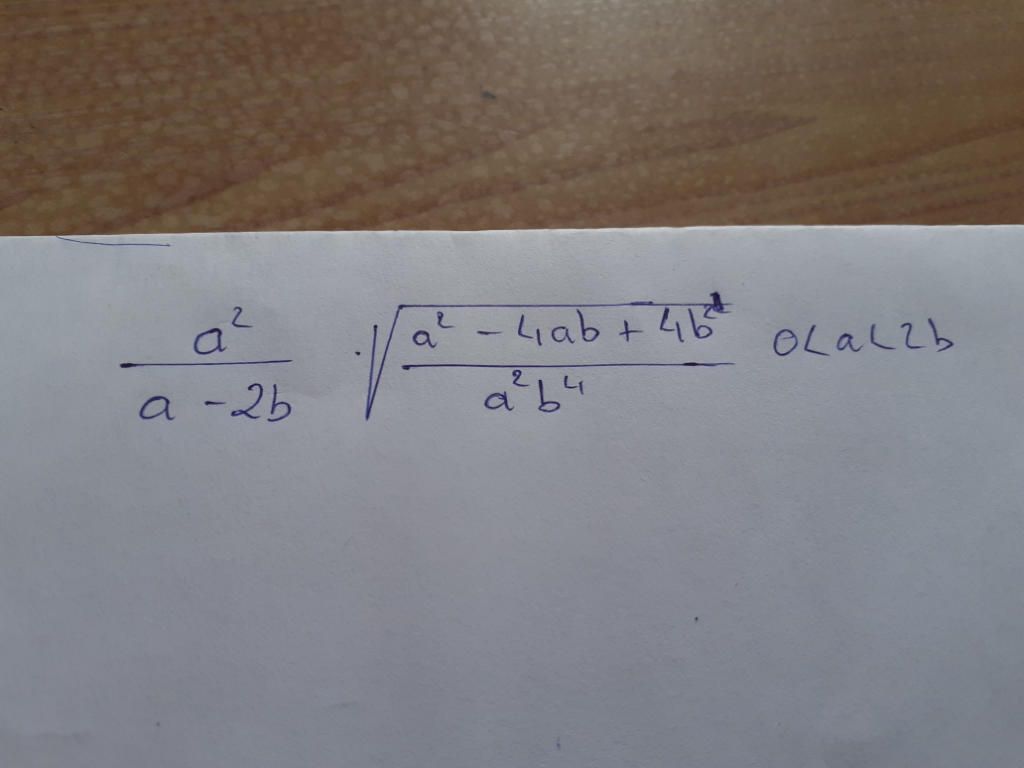 \frac{a^2}{a - 2b} \cdot \sqrt{\frac{a^2 - 4ab + 4b^2}{a^2 b^4}} 0 < a < 2b